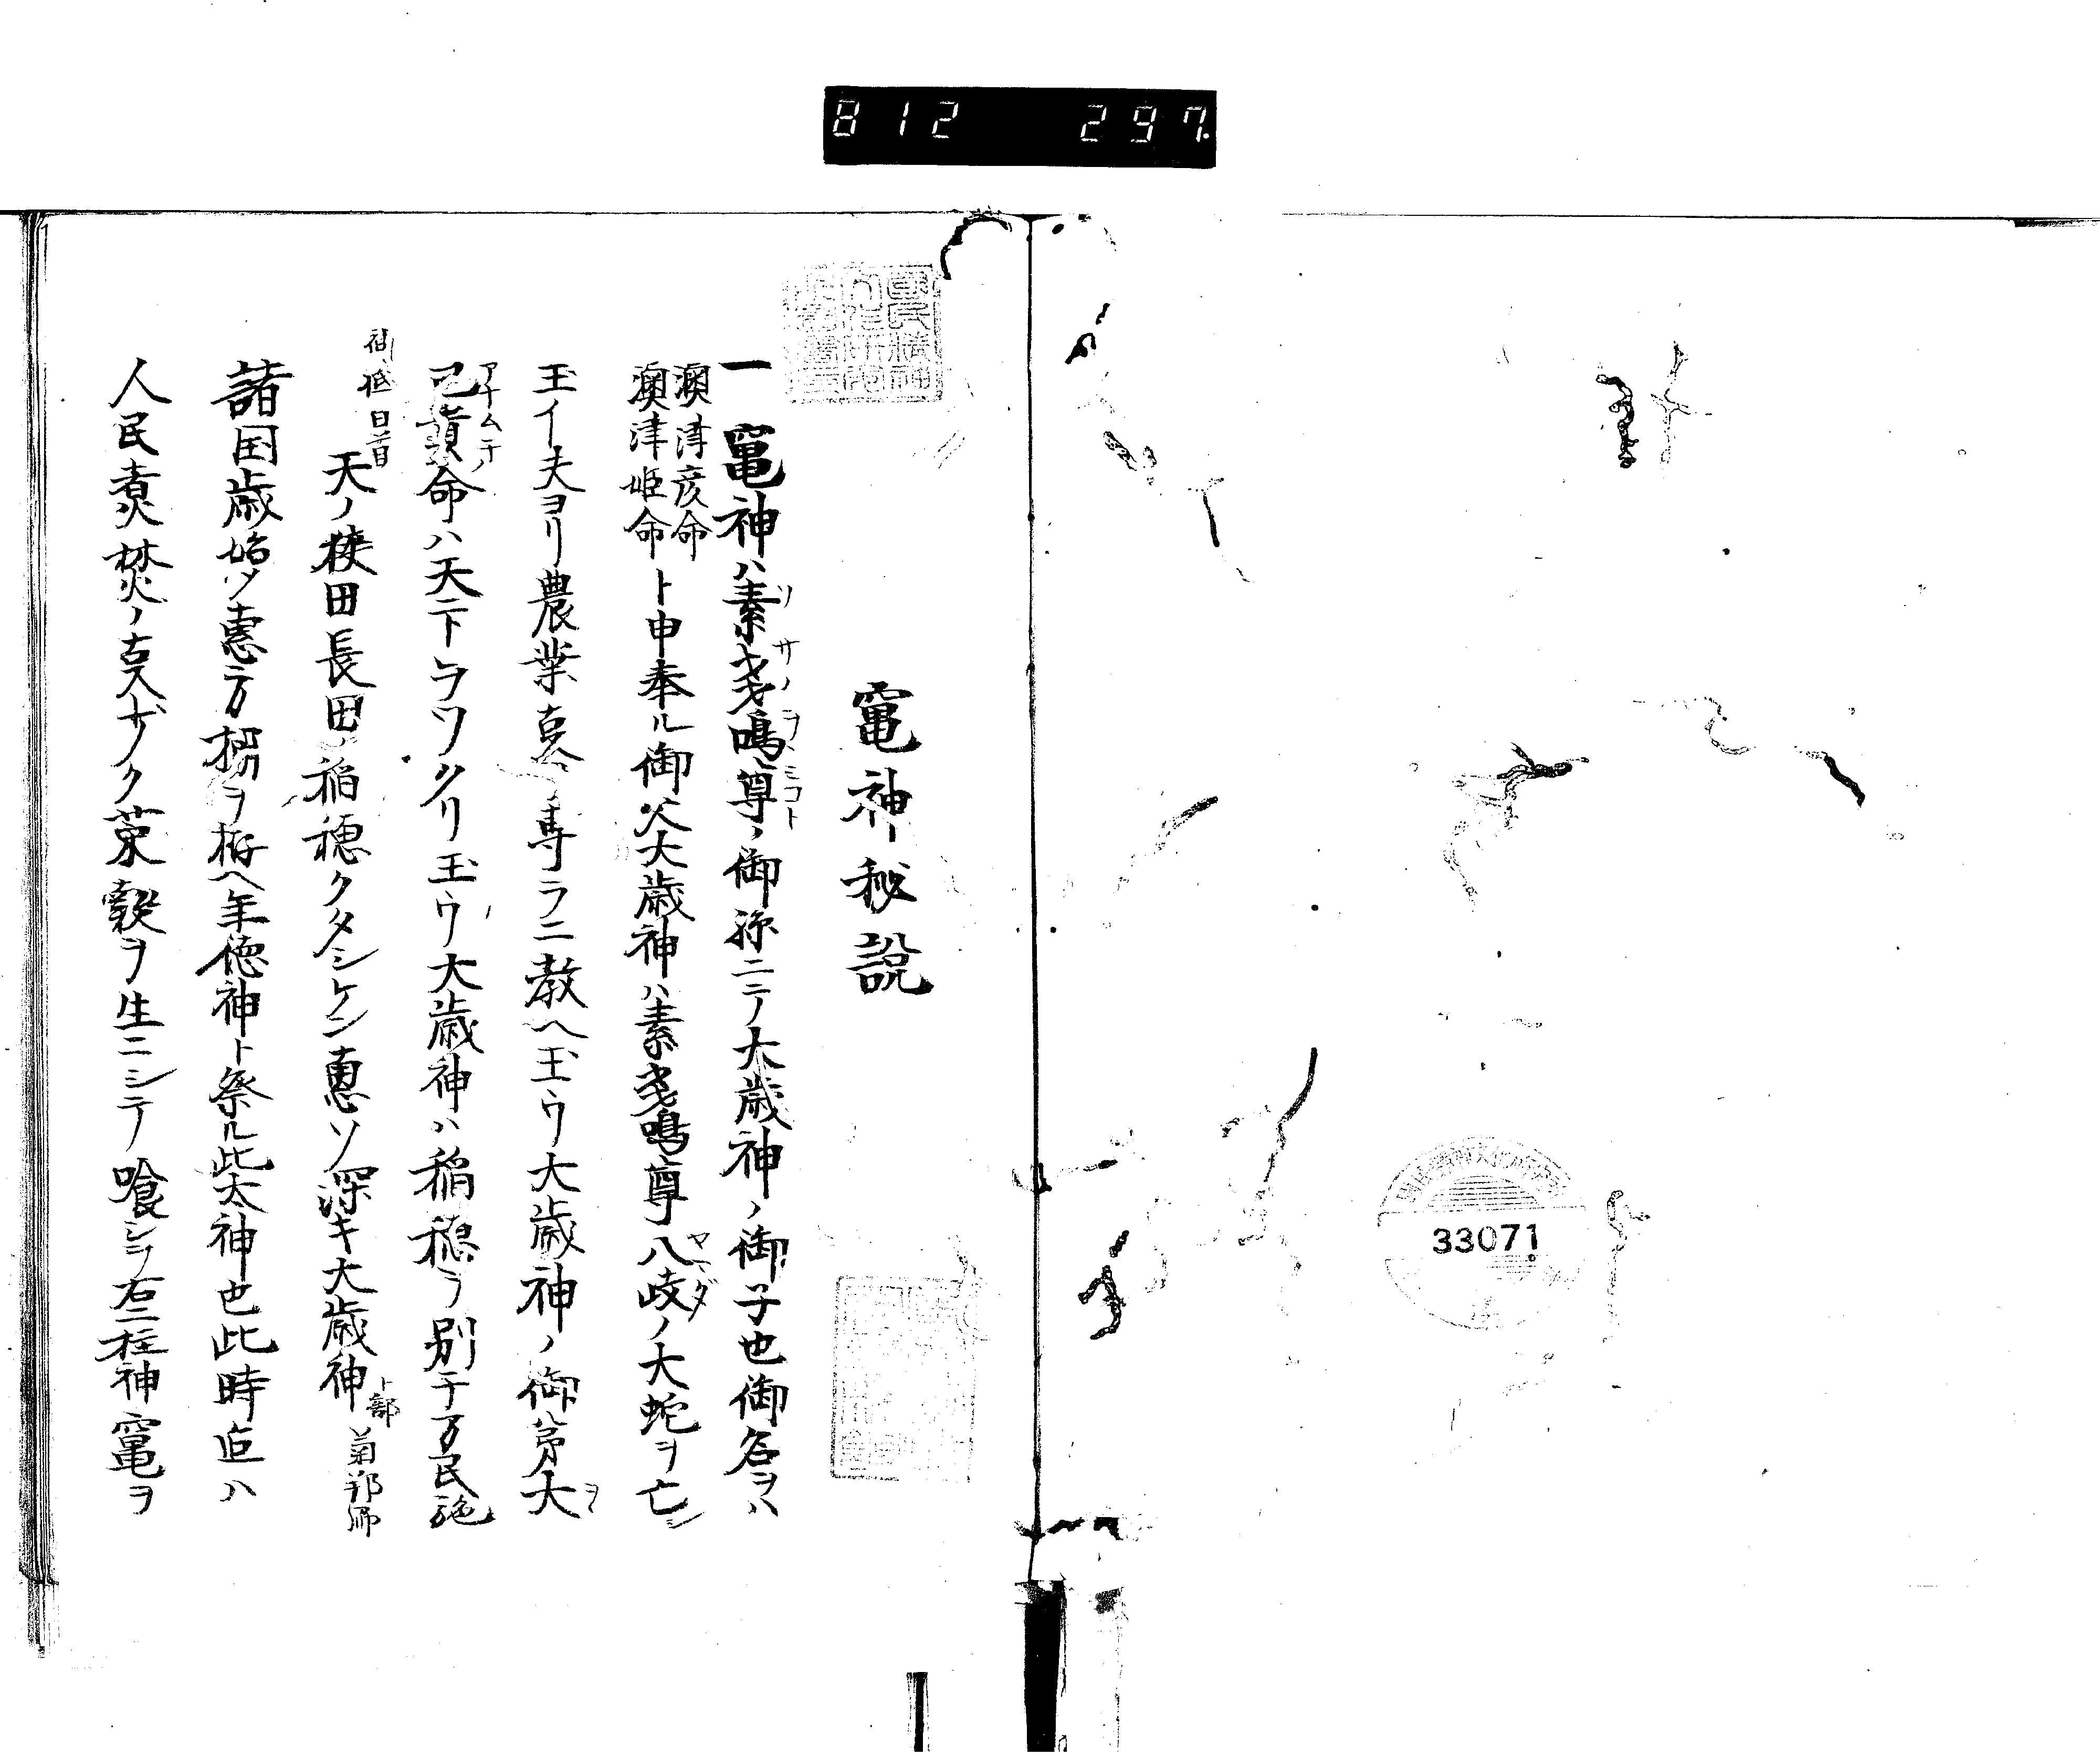 812 297.
33071
竃神秘説
一竃神ハ素戔嗚尊ノ御孫ニテ大歳神ノ御子也御名ヲハ
澳津彦命
澳津姫命
ト申奉ル御父大歳神ハ素戔嗚尊八岐ノ大蛇ヲ亡シ
玉イ夫ヨリ農業 専ラニ教ヘ玉ウ大歳神ノ御弟大
己貴命ハ天下ヲツクリ玉ウ大歳神ハ稲穂ヲ別テ万民
天ノ狭田長田ノ稲穂クタシケン恵ソ深キ大歳神
卜部
諸国歳始メ恵方棚ヲ拵ヘ年徳神ト祭ル此大神也此時迄ハ
人民煮焚ノ ナク菜穀ヲ生ニシテ喰シヲ右二柱神竃ヲ